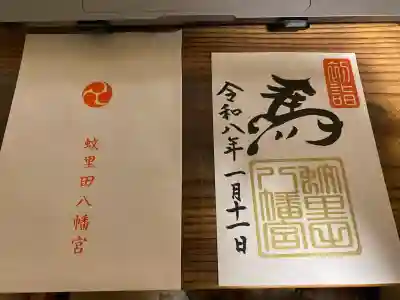 蚊里田八幡宮
初詣
馬
令和八年一月十一日
蚊里田
八幡宮